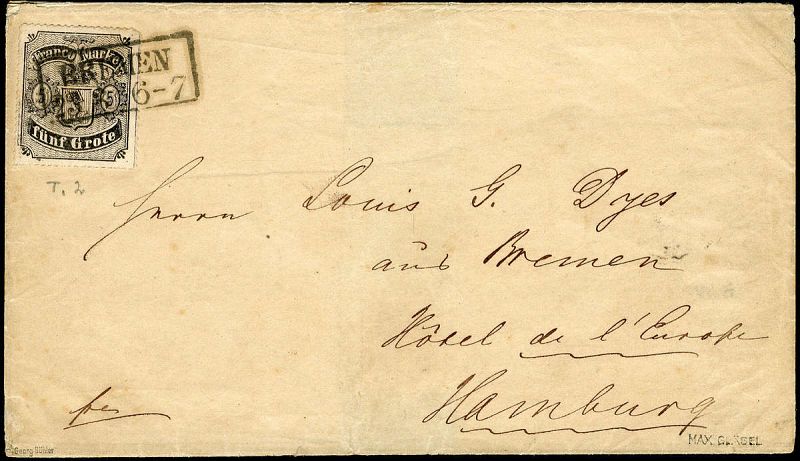 Franco Marke
BREMEN
6-7
5 5
fünf Grote
T. 2
Herrn Louis G. Dyes
aus Bremen
Hôtel de l'Europe
Hamburg
fr
MAX GLÄSEL
Georg Bühler